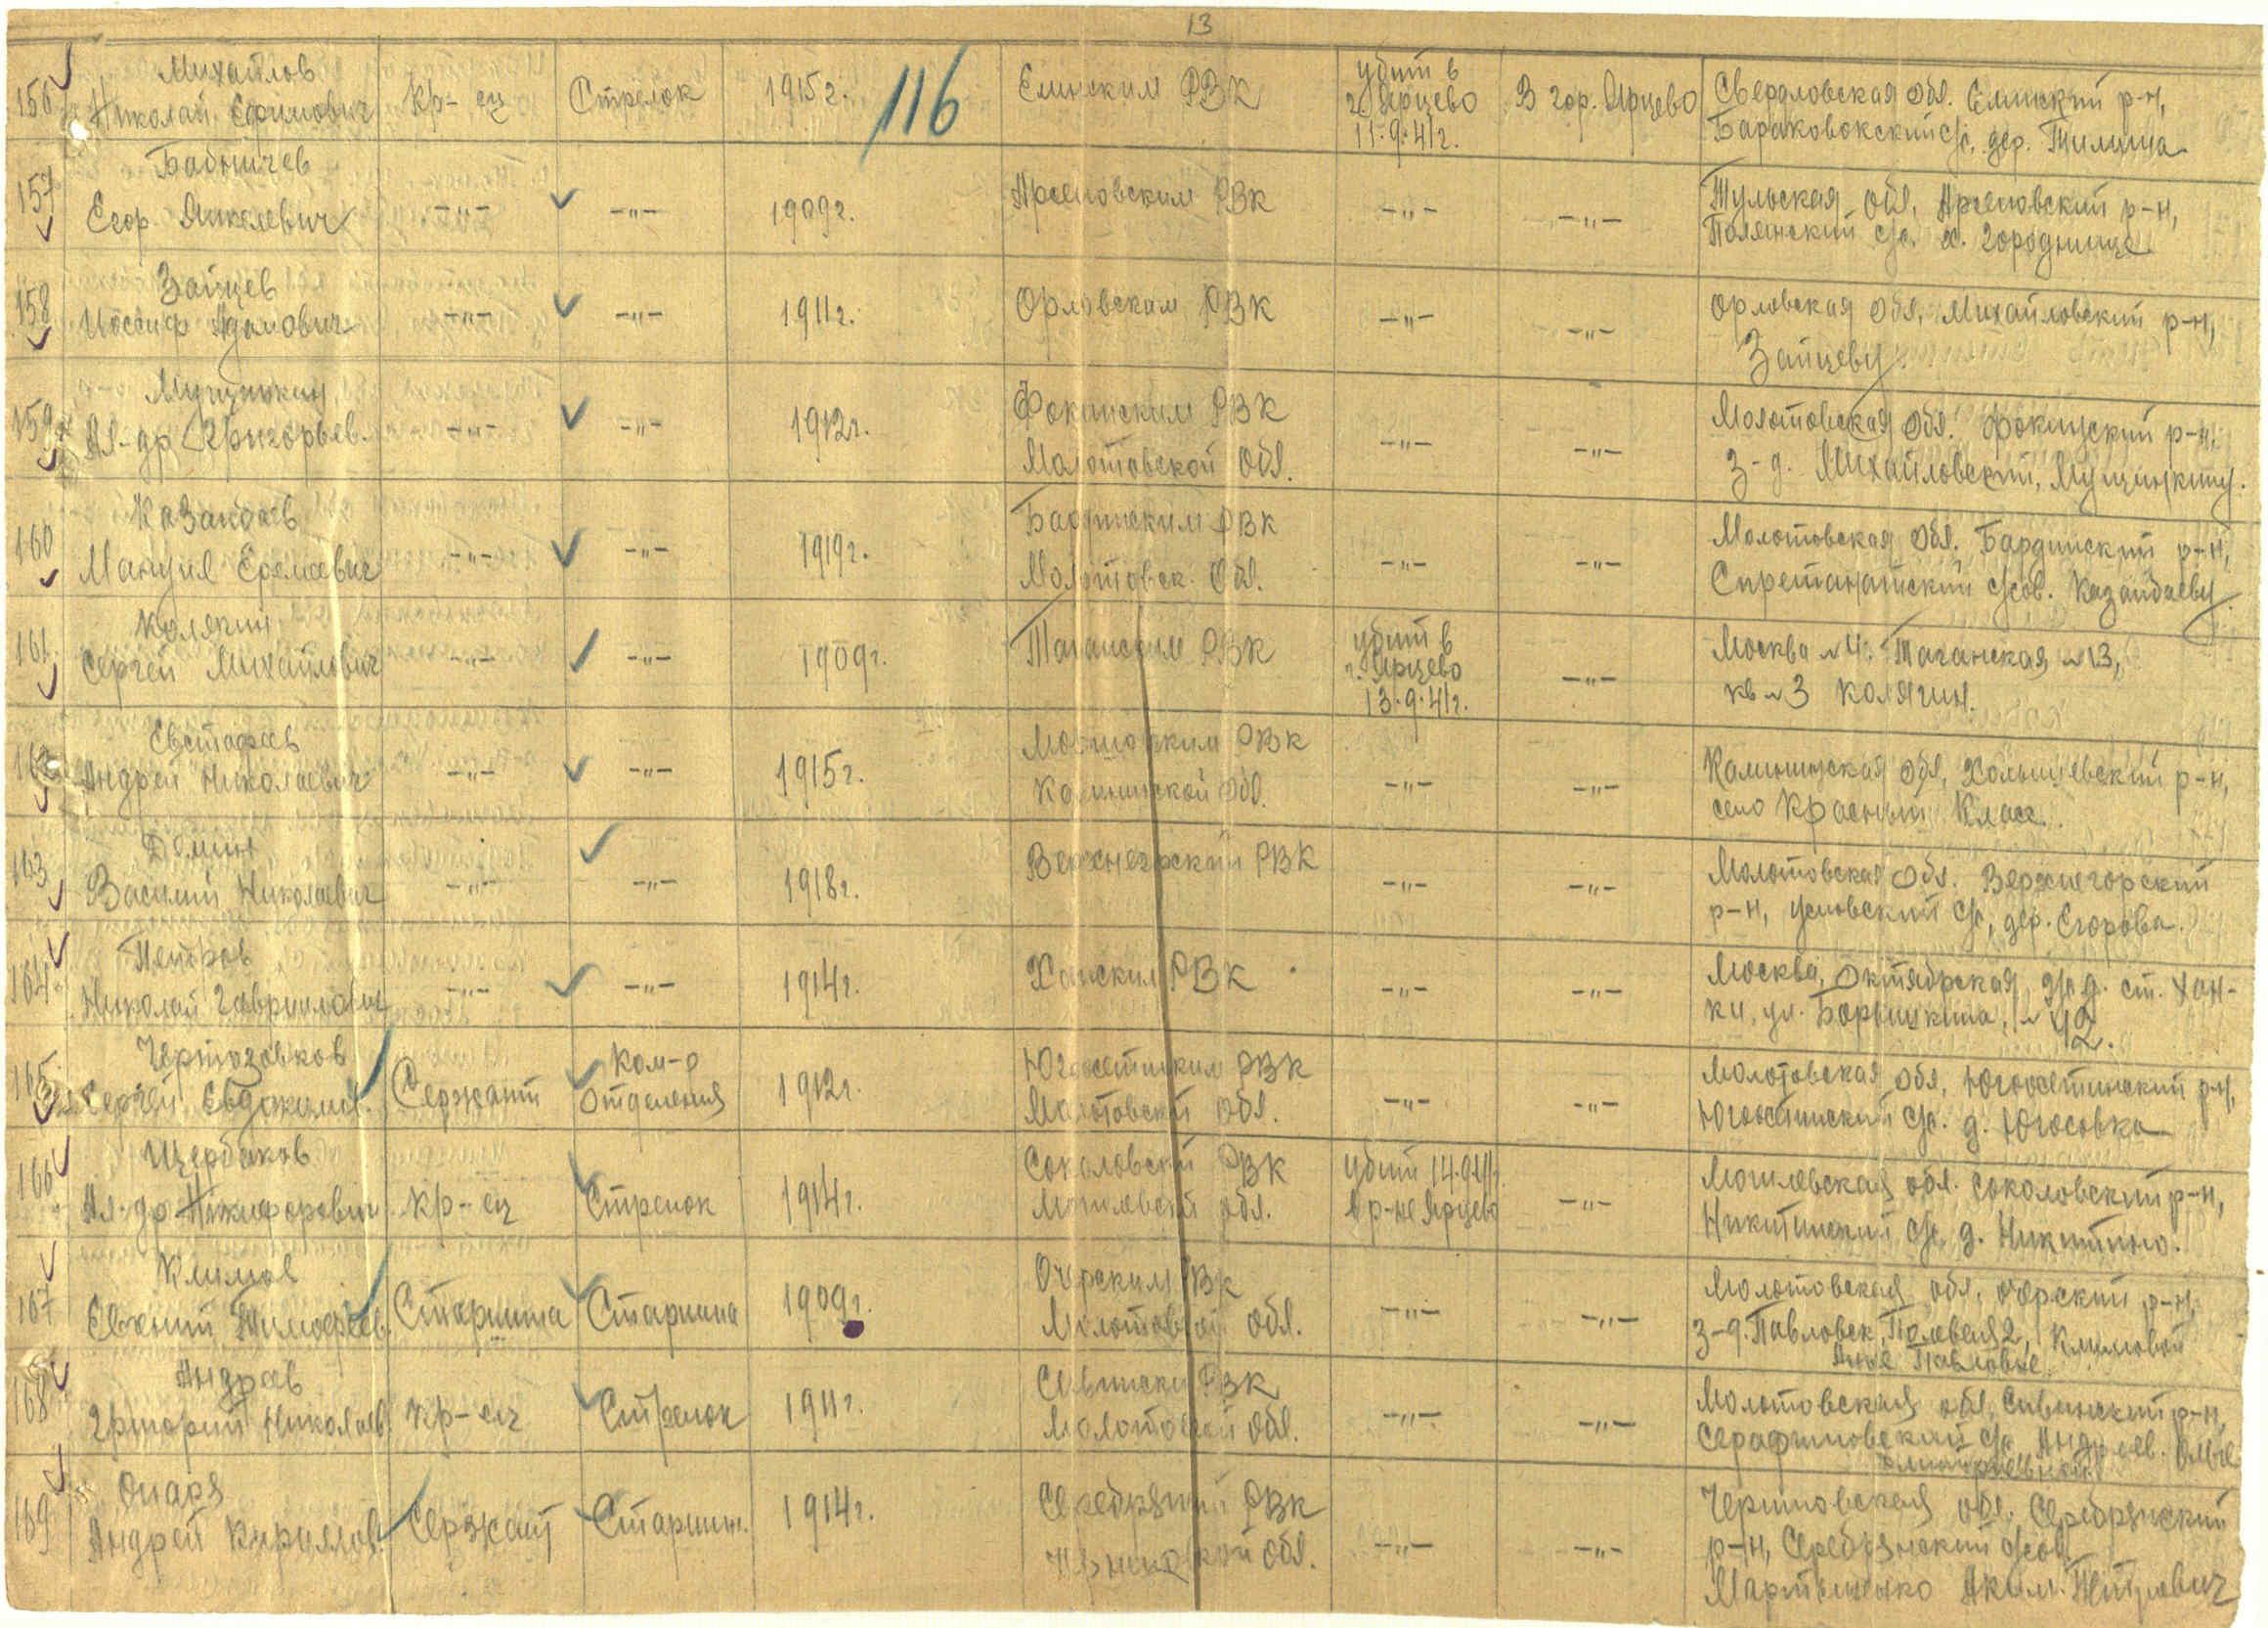 13
116
156 Михайлов
Николай Ефимович кр-ец Стрелок 1915г. Еминским РВК убит в
г. Ярцево
11.9.41г. В гор. Ярцево Свердловская обл. Еминский р-н,
Бараковокский с/с, дер. Тилиша
157 Бабычев
Егор -"- -"- 1909г. Арсеновским РВК -"- -"- Тульская обл. Арсеновский р-н,
Полянский с/с, х. Городнище
158 Зайцев
Иоссиф Адамович -"- -"- 1911г. Орловским РВК -"- -"- Орловская обл. Михайловский р-н,
Зайцеву.
159
Ал-др Григорьев. -"- -"- 1912г. Фокинским РВК
Молотовской обл. -"- -"- Молотовская обл. Фокинский р-н,
з-д. Михайловский,
160 Казанбаев
Мануил Еремеевич -"- -"- 1919г. Бардинским РВК
Молотовск. обл. -"- -"- Молотовская обл. Бардинский р-н,
с/сов. Казанбаеву.
161 Колягин
Сергей Михайлович -"- -"- 1909г. Таганским РВК убит в
г. Ярцево
13.9.41г. -"- Москва №4. Таганская №13,
кв №3 Колягин.
162 Евстафев
Андрей Николаевич -"- -"- 1915г. РВК
Калининской обл. -"- -"- Калининская обл, р-н,
село Красный
163 Демин
Василий Николаевич -"- -"- 1918г. Верхнегорский РВК -"- -"- Молотовская обл. Верхнегорский
р-н, Усновский с/с, дер. Егорова.
164 Петров
Николай Гаврилович -"- -"- 1914г. Химским РВК -"- -"- Москва, Октябрская ж/д. ст. Хим-
ки, ул. № 42.
165
Сергей Евдоким. Сержант Ком-р
отделения 1912г. Югоосетинским РВК
Молотовской обл. -"- -"- Молотовская обл, Югоосетинский р-н,
Югоосетинский с/с. д. Югосовка
166 Щербаков
Ал-др Никиферович кр-ец Стрелок 1914г. Соколовский РВК
Могилевской обл. убит 14.9.41г.
в р-не Ярцево -"- Могилевская обл. Соколовский р-н,
Никитинский с/с, д. Никитино.
167 Климов
Евгений Тимофеев. Старшина Старшина 1909г. Очерским РВК
Молотовской обл. -"- -"- Молотовская обл. Очерский р-н,
з-д. Павловск, Полевая 2, Климовой
Анне Павловне.
168 Андреев
Григорий Николаев. кр-ец Стрелок 1911г. Сивинский РВК
Молотовской обл. -"- -"- Молотовская обл. Сивинский р-н,
Серафимовский с/с, Андреев. Ольге
169 Опаря
Андрей Кириллов. Сержант Старшин. 1914г. Серебрянский РВК
обл. -"- -"- Черниговская обл. Серебрянский
р-н, Серебрянский с/сов.
Мартыненко Аким Петрович